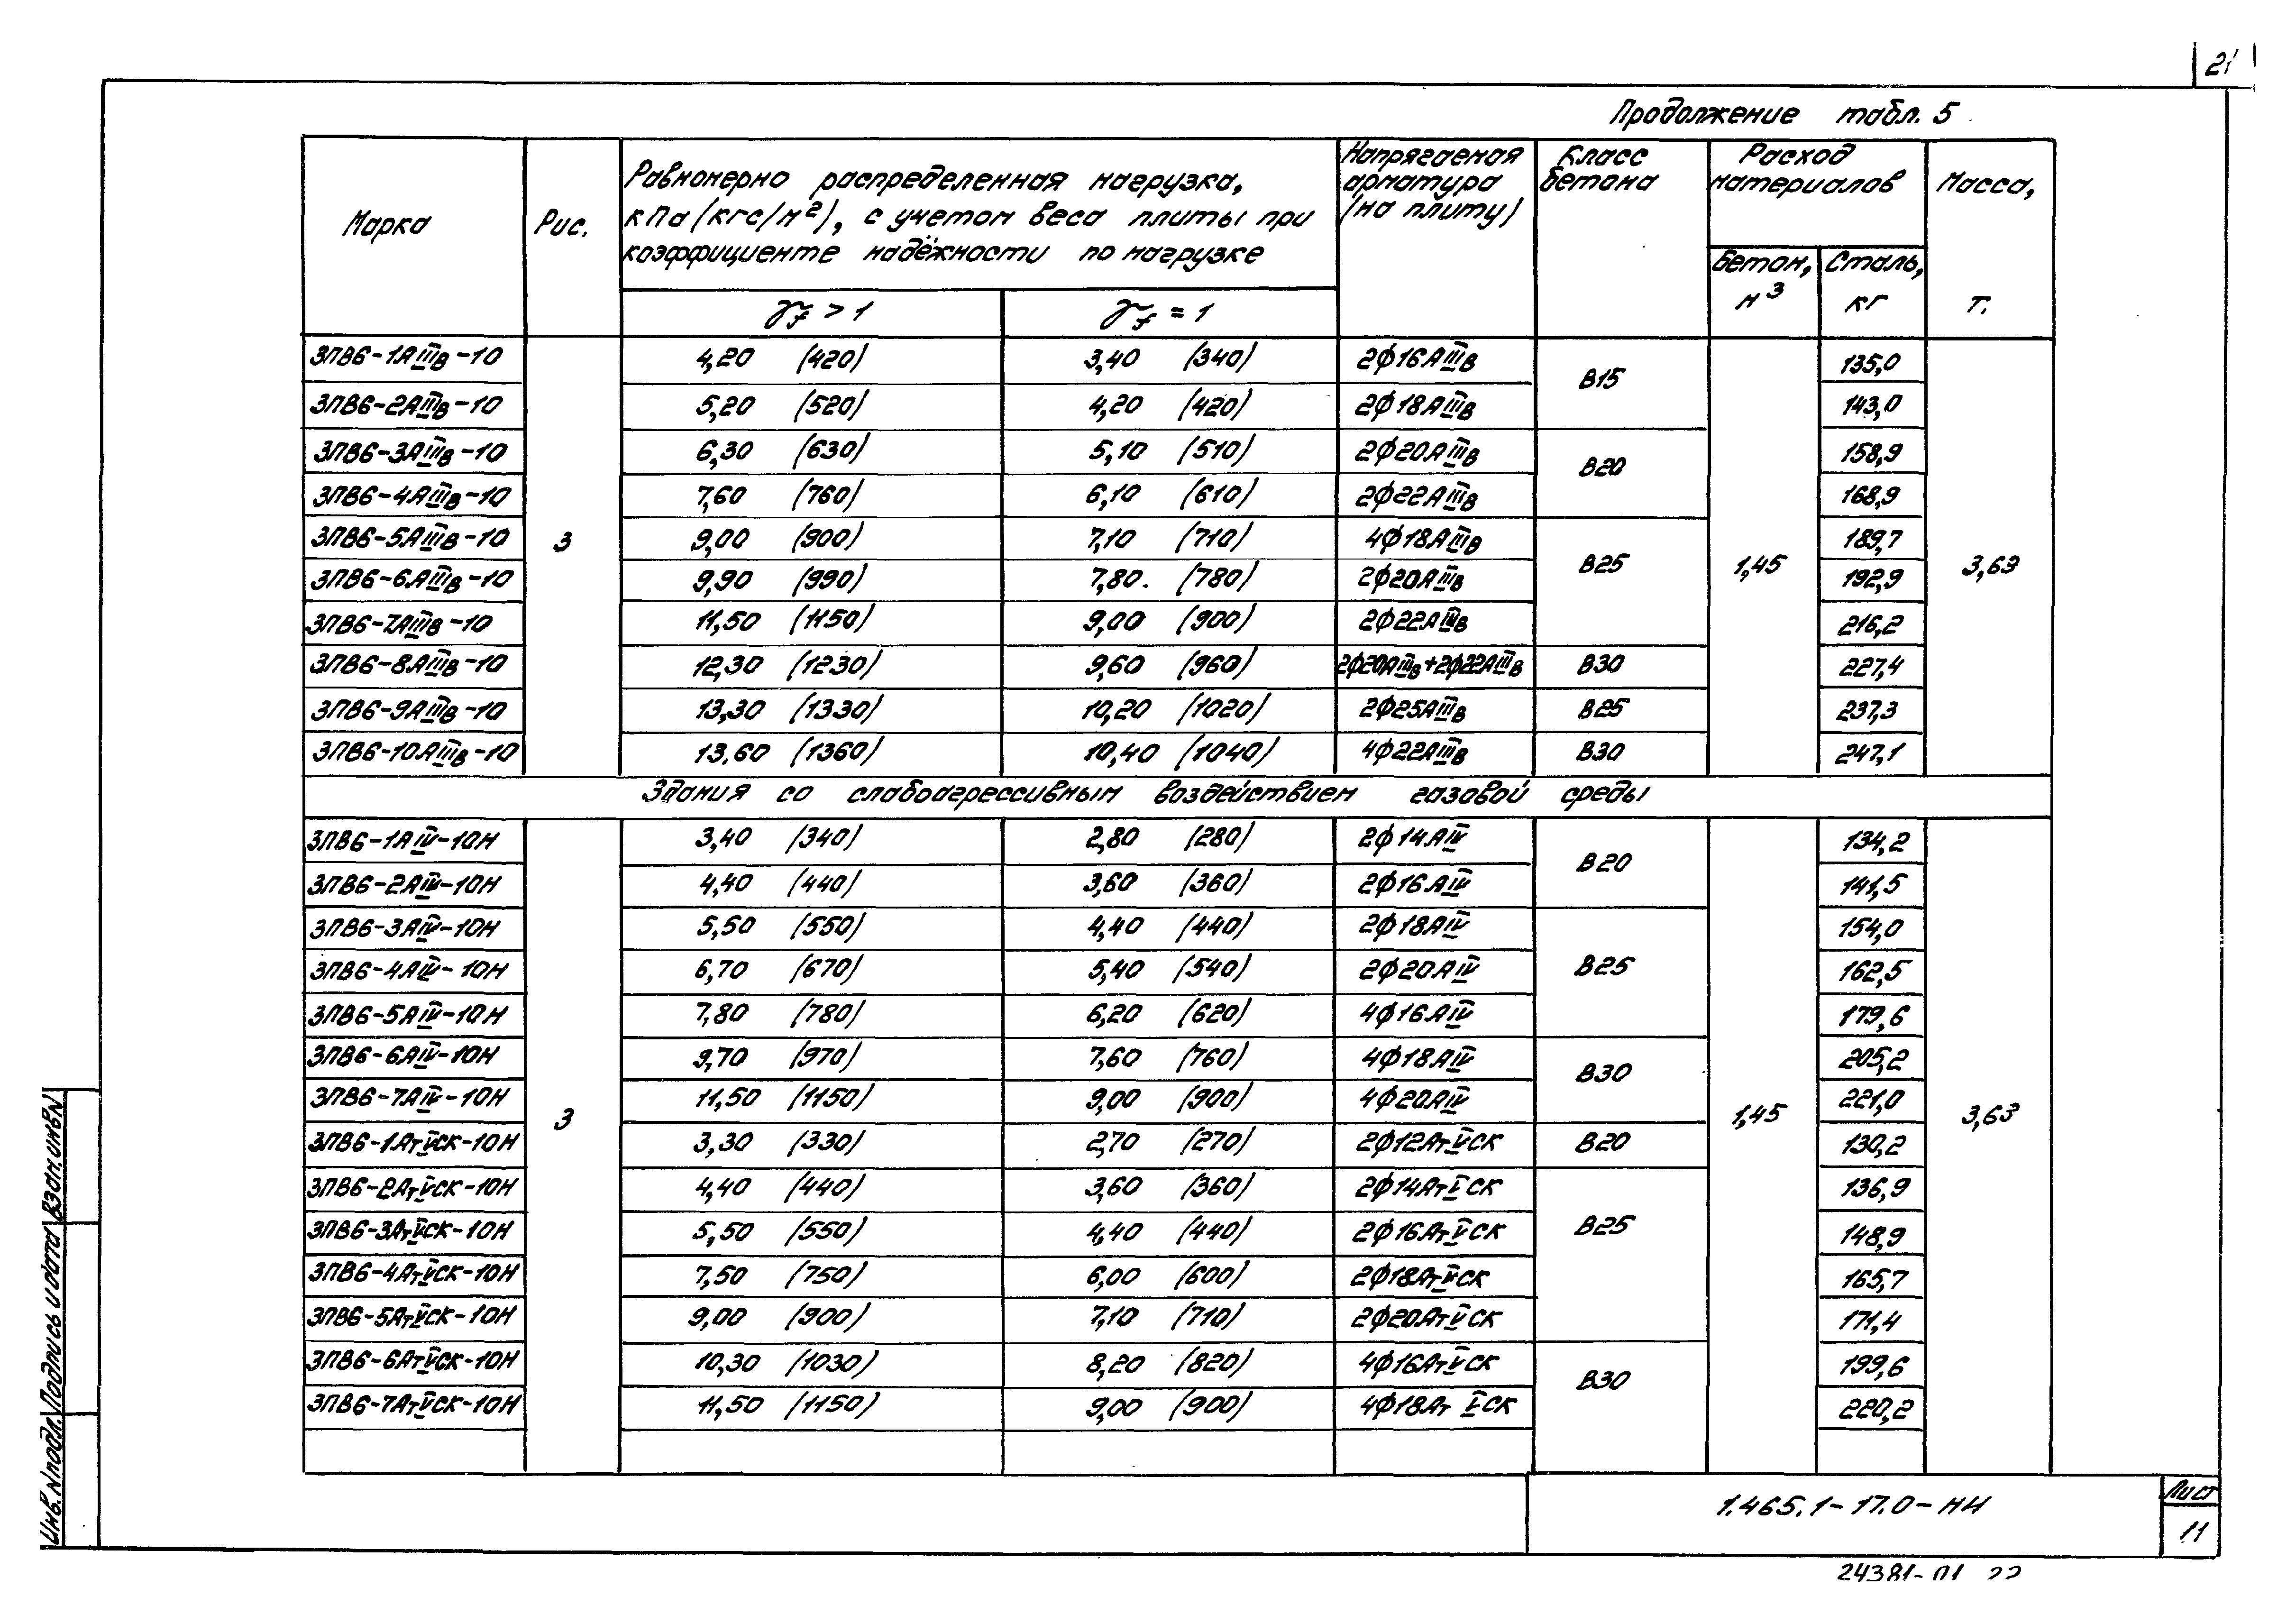 21
Продолжение табл. 5
Марка | Рис. | Равномерно распределенная нагрузка, кПа (кгс/м²), с учетом веса плиты при коэффициенте надёжности по нагрузке | Напрягаемая арматура (на плиту) | Класс бетона | Расход материалов | Масса, т.
γf > 1 | γf = 1 | Бетон, м³ | Сталь, кг
3ПВ6-1АIIIв-10 | 3 | 4,20 (420) | 3,40 (340) | 2ф16АIIIв | В15 | 1,45 | 135,0 | 3,63
3ПВ6-2АIIIв-10 | 5,20 (520) | 4,20 (420) | 2ф18АIIIв | 143,0
3ПВ6-3АIIIв-10 | 6,30 (630) | 5,10 (510) | 2ф20АIIIв | В20 | 158,9
3ПВ6-4АIIIв-10 | 7,60 (760) | 6,10 (610) | 2ф22АIIIв | 168,9
3ПВ6-5АIIIв-10 | 9,00 (900) | 7,10 (710) | 4ф18АIIIв | В25 | 189,7
3ПВ6-6АIIIв-10 | 9,90 (990) | 7,80. (780) | 2ф20АIIIв | 192,9
3ПВ6-7АIIIв-10 | 11,50 (1150) | 9,00 (900) | 2ф22АIIIв | 216,2
3ПВ6-8АIIIв-10 | 12,30 (1230) | 9,60 (960) | 2ф20АIIIв+2ф22АIIIв | В30 | 227,4
3ПВ6-9АIIIв-10 | 13,30 (1330) | 10,20 (1020) | 2ф25АIIIв | В25 | 237,3
3ПВ6-10АIIIв-10 | 13.60 (1360) | 10,40 (1040) | 4ф22АIIIв | В30 | 247,1
Здания со слабоагрессивным воздействием газовой среды
3ПВ6-1АIV-10Н | 3 | 3,40 (340) | 2,80 (280) | 2ф14АIV | В20 | 1,45 | 134,2 | 3,63
3ПВ6-2АIV-10Н | 4,40 (440) | 3,60 (360) | 2ф16АIV | 141,5
3ПВ6-3АIV-10Н | 5,50 (550) | 4,40 (440) | 2ф18АIV | В25 | 154,0
3ПВ6-4АIV-10Н | 6,70 (670) | 5,40 (540) | 2ф20АIV | 162,5
3ПВ6-5АIV-10Н | 7,80 (780) | 6,20 (620) | 4ф16АIV | 179,6
3ПВ6-6АIV-10Н | 9,70 (970) | 7,60 (760) | 4ф18АIV | В30 | 205,2
3ПВ6-7АIV-10Н | 11,50 (1150) | 9,00 (900) | 4ф20АIV | 221,0
3ПВ6-1АтVСК-10Н | 3,30 (330) | 2,70 (270) | 2ф12АтVСК | В20 | 130,2
3ПВ6-2АтVСК-10Н | 4,40 (440) | 3,60 (360) | 2ф14АтVСК | В25 | 136,9
3ПВ6-3АтVСК-10Н | 5,50 (550) | 4,40 (440) | 2ф16АтVСК | 148,9
3ПВ6-4АтVСК-10Н | 7,50 (750) | 6,00 (600) | 2ф18АтVСК | 165,7
3ПВ6-5АтVСК-10Н | 9,00 (900) | 7,10 (710) | 2ф20АтVСК | 171,4
3ПВ6-6АтVСК-10Н | 10,30 (1030) | 8,20 (820) | 4ф16АтVСК | В30 | 199,6
3ПВ6-7АтVСК-10Н | 11,50 (1150) | 9,00 (900) | 4ф18АтVСК | 220,2
Инв.№подл. Подпись и дата Взам.инв№
1.465.1-17.0-НИ
Лист
11
24381-01 22